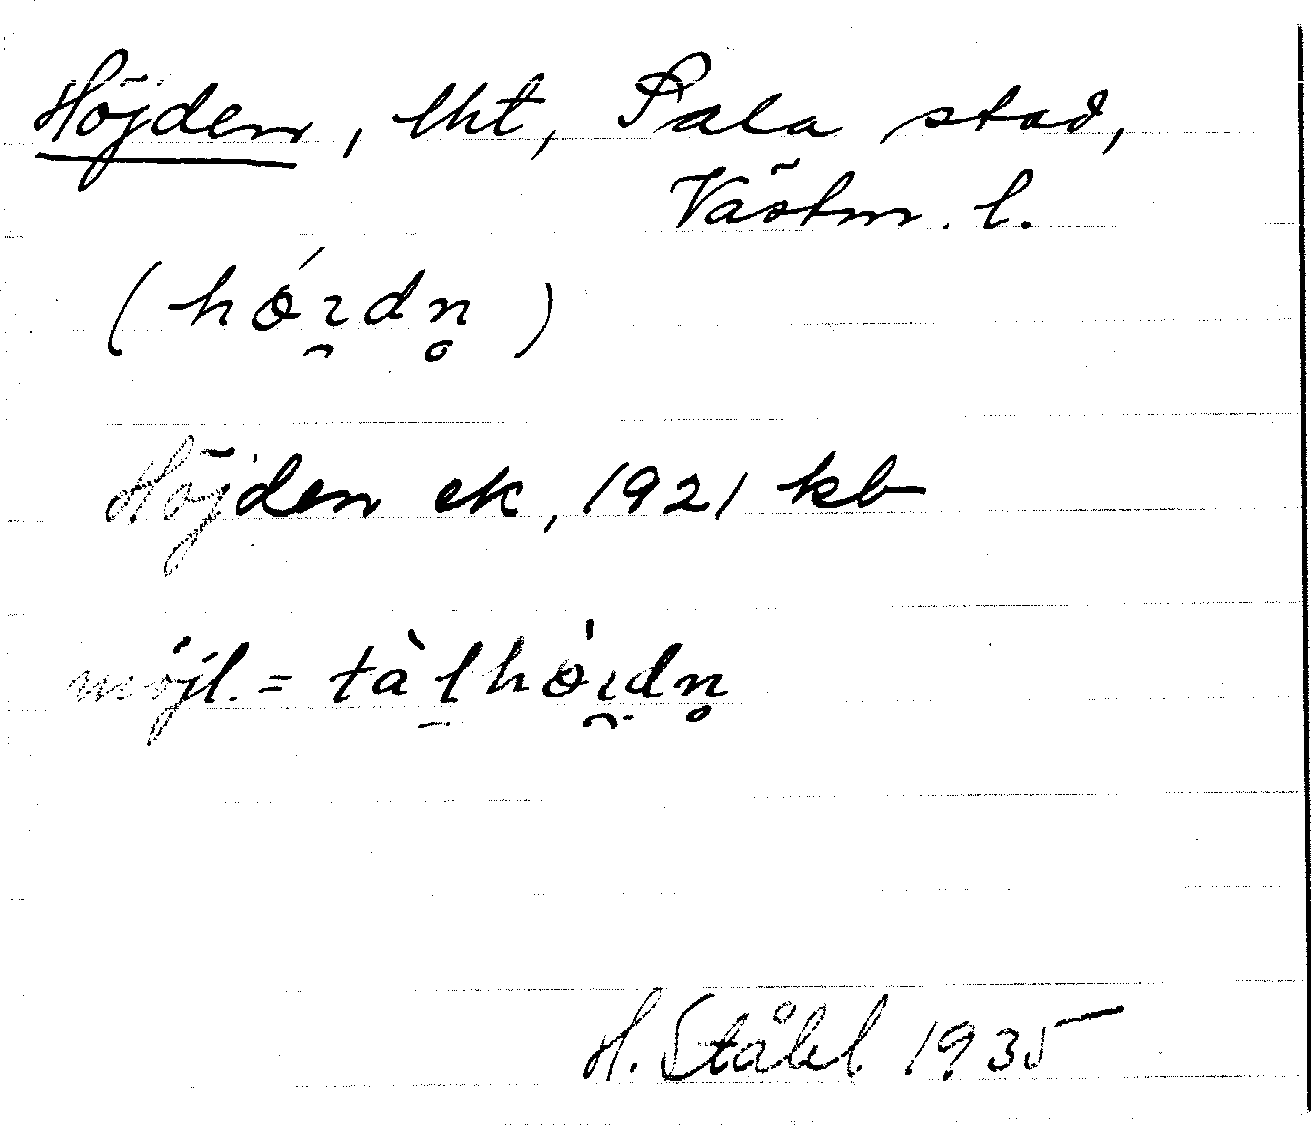 Höjden, lht, Sala stad,
Västm. l.
(hǿɪ̯dn̥)
Höjden ek, 1921 kb
möjl. = tàl̠hǿɪ̯dn̥
H. Ståhl 1935